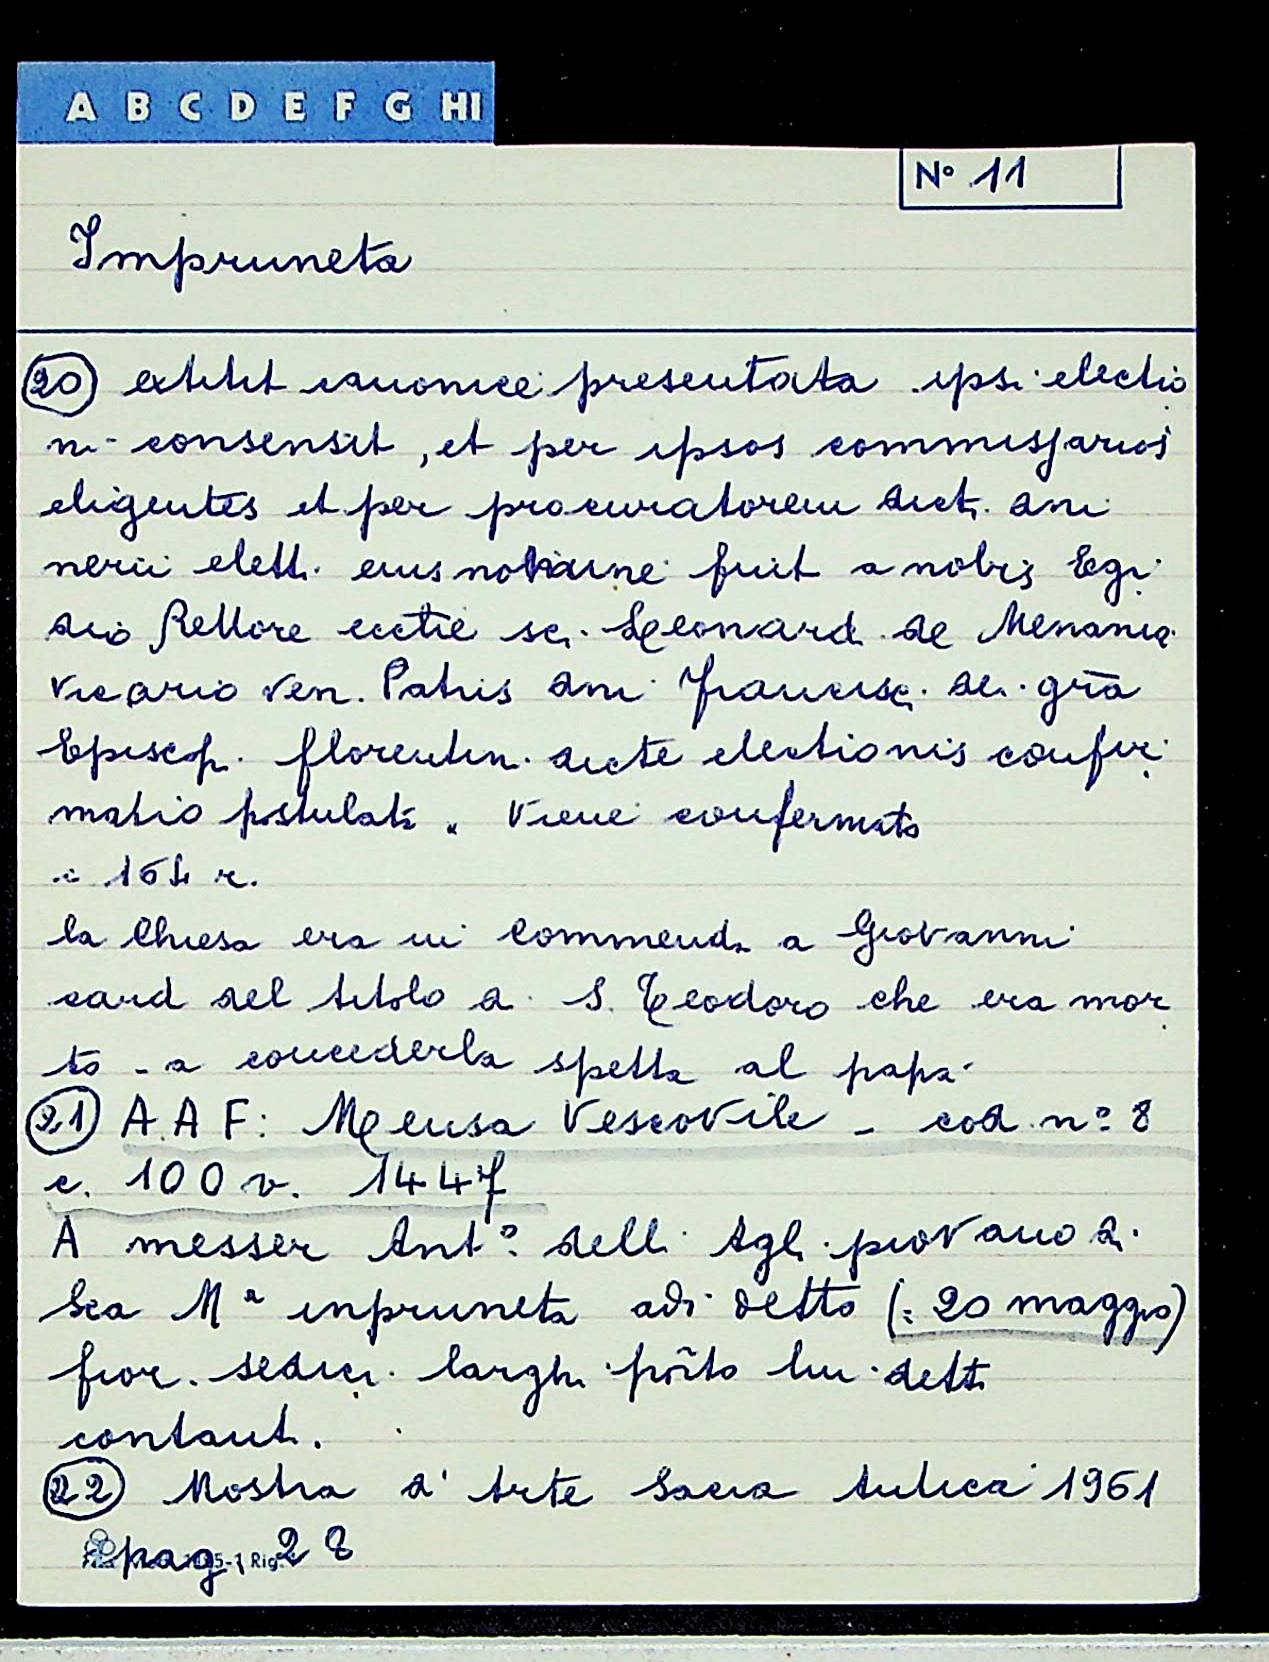 A B C D E F G HI
N° 11
Impruneta
(20) extitit canonice presentata ipsi electio
ni consensit, et per ipsos commissarios
eligentes et per procuratorem dict. dni
nerii elett. fuit a nobis Egi
dio Rettore ecctie sci. Leonard. de
Vicario Ven. Patris dni Francisc. dei grā
Episcop. florentin. dicte electionis confir
matio postulata. Viene confermato
c 164 r.
la Chiesa era in Commenda a Giovanni
card del titolo di S. Teodoro che era mor
to - a concederla spetta al papa.
(21) A.A.F: Mensa Vescovile - cod. n° 8
c. 100 v. 1447
A messer Ant° delli Agli piovano di
Sca Mª inpruneta adi detto (: 20 maggio)
fior. sedici larghi portò lui dett
contanti.
(22) Mostra d'Arte Sacra Antica 1961
pag. 28